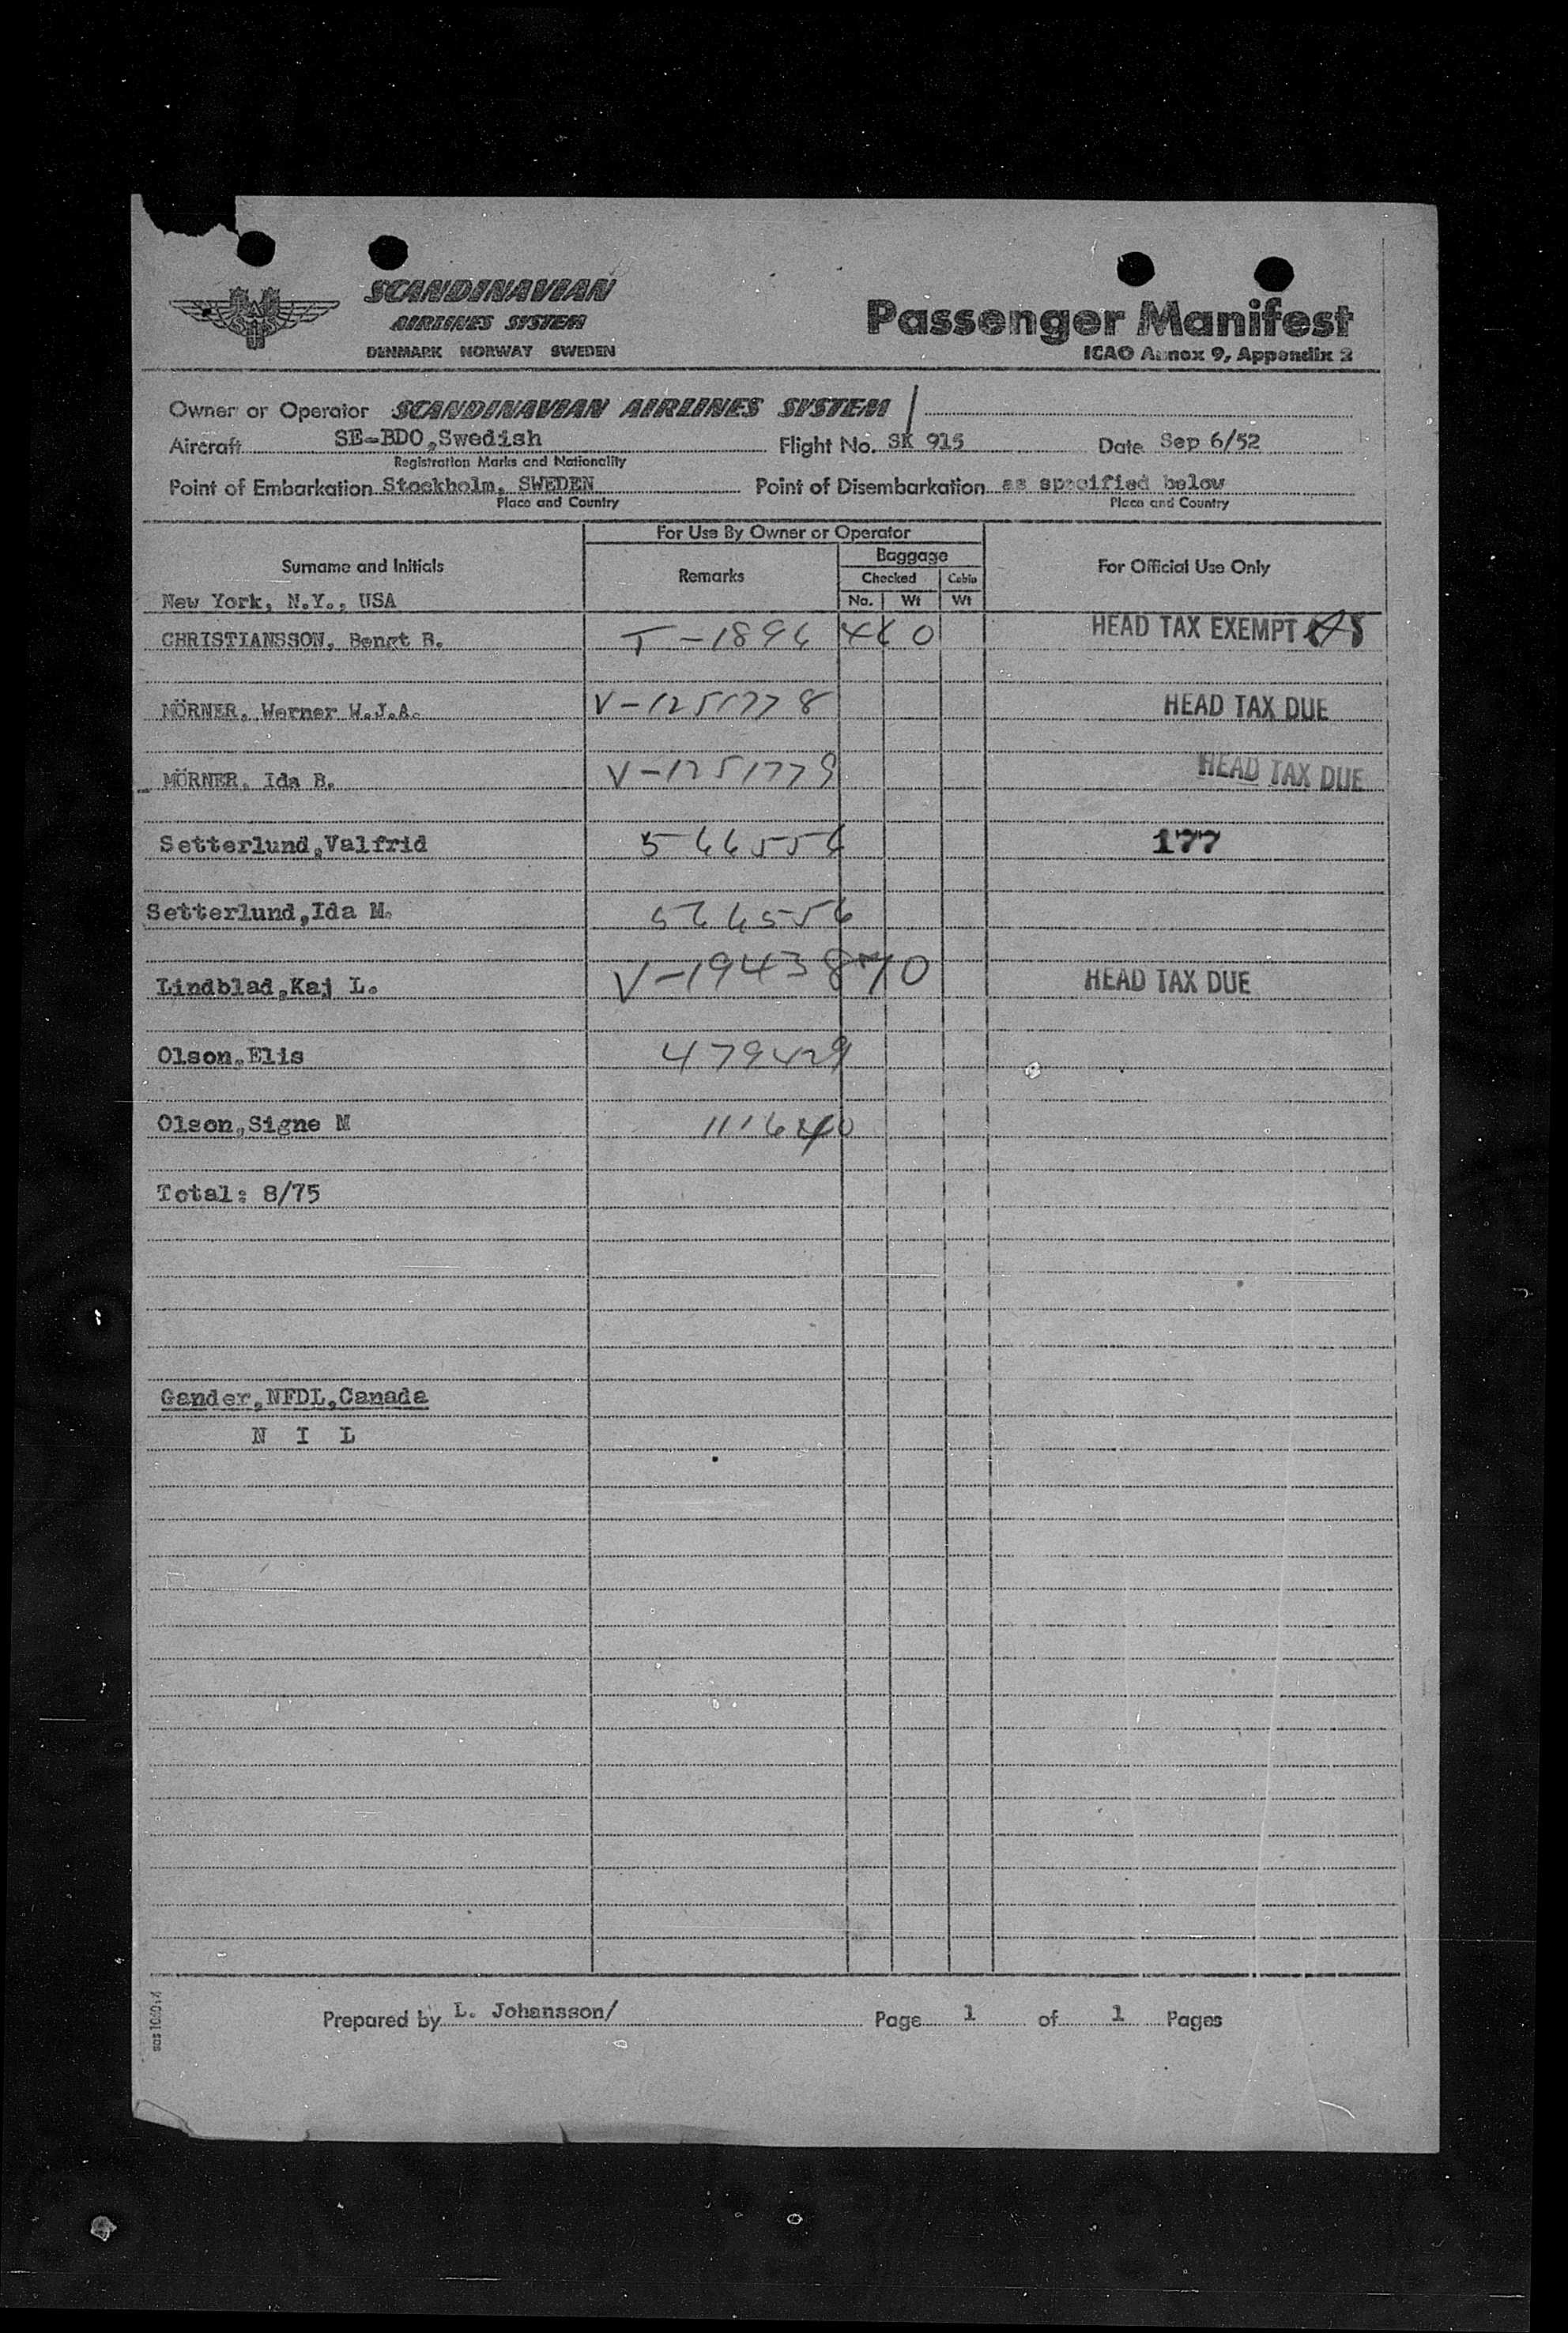 SCANDINAVIAN
AIRLINES SYSTEM
DENMARK NORWAY SWEDEN
Passenger Manifest
ICAO Annex 9, Appendix 2
Owner or Operator SCANDINAVIAN AIRLINES SYSTEM
Aircraft SE-BDO,Swedish Flight No. SK 915 Date Sep 6/52
Registration Marks and Nationality
Point of Embarkation Stockholm, SWEDEN Point of Disembarkation as specified below
Place and Country Place and Country
For Use By Owner or Operator
Surname and Initials Remarks Baggage For Official Use Only
Checked Cabin
No. Wt Wt
New York, N.Y., USA
CHRISTIANSSON, Bengt B. T-1896460 HEAD TAX EXEMPT
MÖRNER, Werner W.J.A. V-1251778 HEAD TAX DUE
MÖRNER, Ida B. V-1251779 HEAD TAX DUE
Setterlund,Valfrid 5466556 177
Setterlund,Ida M. 566556
Lindblad,Kaj L. V-1943870 HEAD TAX DUE
Olson,Elis 479429
Olson,Signe M 111640
Total: 8/75
Gander,NFDL,Canada
N I L
Prepared by L. Johansson/ Page 1 of 1 Pages